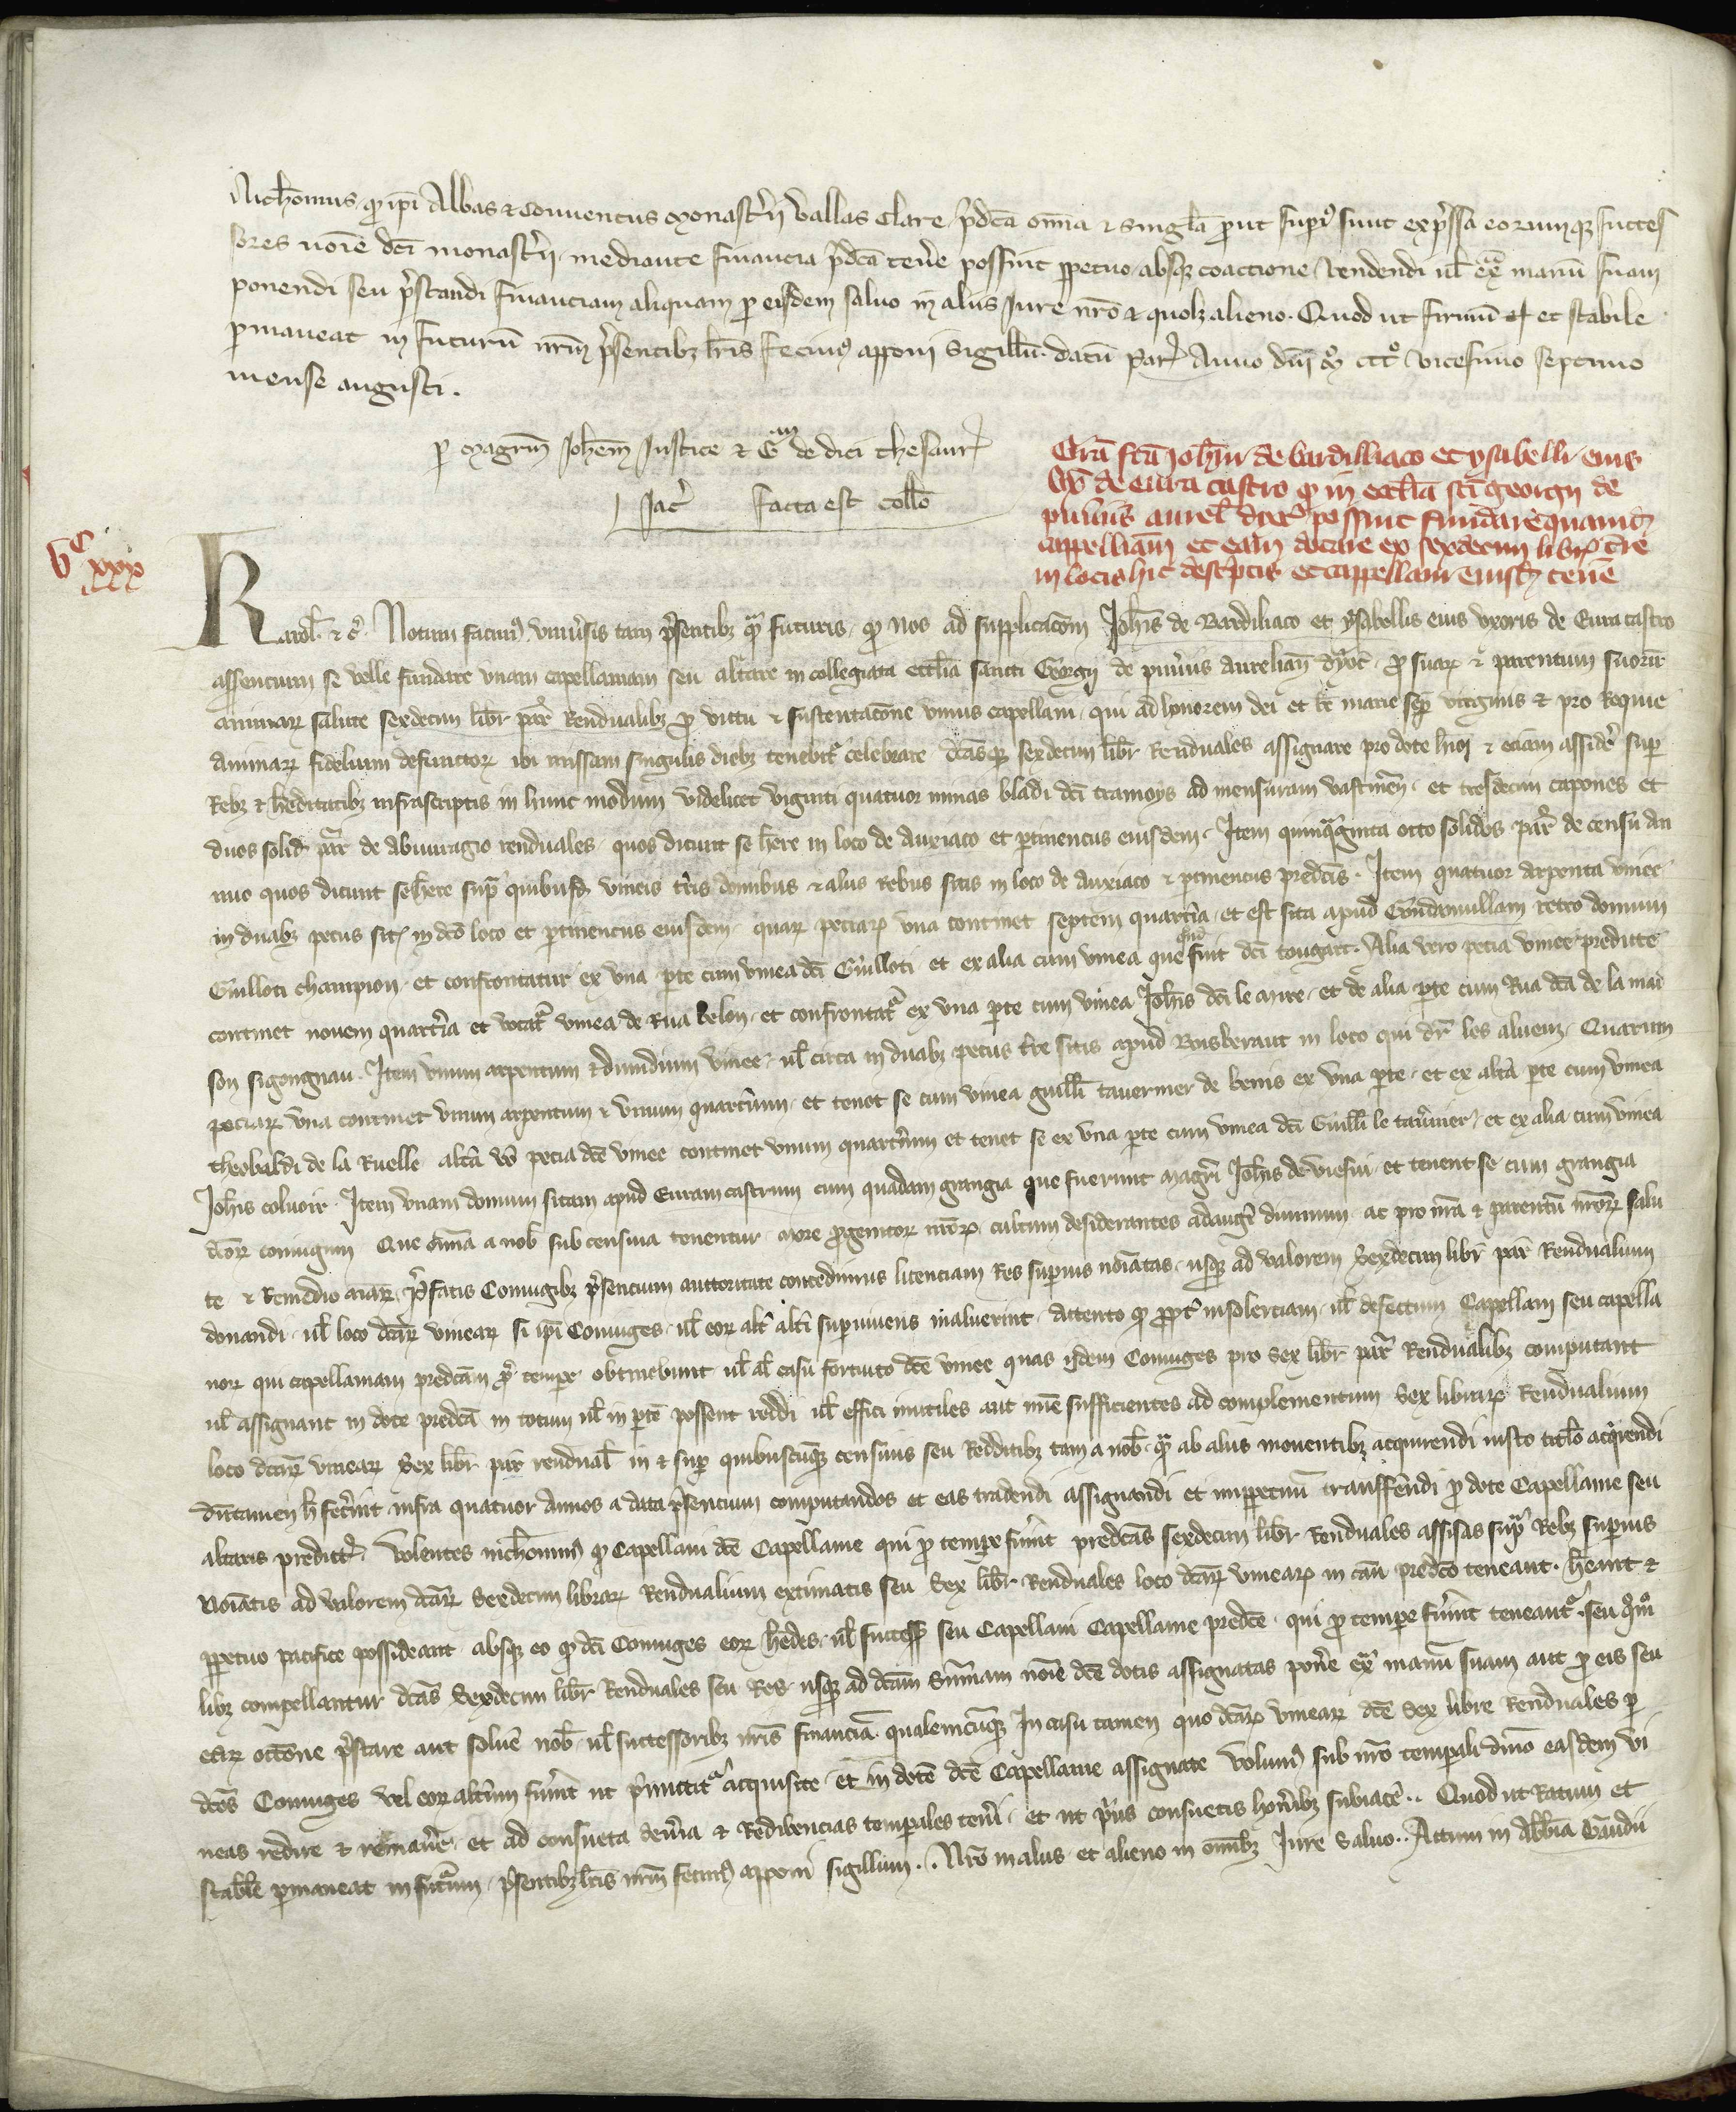 Nichomus qd ipi Abbas et Conventus monasterii Vallis Clare pdca omia et singla prout supius sunt expressa eorumque succes
sores noie dci monasterii mediante financia pdca tenere possint ppetuo absque coaccione vendendi vl extra manum suam
ponendi seu prestandi financiam aliquam pro eisdem salvo in aliis Iure nro et quolz alieno. Quod ut firmu et stabile
pmaneat in futurum nrm psentibz lris fecimus apponi sigillu. datu Par Anno dni Mo CCCo vicesimo septimo
mense augusti.
p magrm Johem Justice et G de dici thesaur
Jac facta est collo
Lra scdm Johm de Bardilliaco et ysabelli eius
de Eura castro qd in ecclia sci Georgii de
Puveris aurel dioc possint fundare quamdam
cappellaniam et eam dotare ex sexdecim libr tre
in locis hic descriptis et cappellani eiusd tenere
Vc xxx
Karol etc. Notum facimus universis tam psentibz quam futuris qd nos ad supplicacom Johis de Bardiliaco et ysabellis eius uxoris de Eura castro
assencium se velle fundare unam capellaniam seu altare in collegiata ecclia sancti Georgii de puveriis aurelian dyoc pro suarum et parentum suorum
animarum salute sexdecim libr par Rendualibz pro victu et sustentacone unius capellani qui ad honorem dei et be marie semper virginis et pro Requie
animarum fidelium defunctorum ibi missam singulis diebz tenebitur celebrare dcasque sexdecim libr Renduales assignare pro dote huiusmodi et eciam assidere super
Rebz et hereditatibz infrascriptis in hunc modum videlicet viginti quatuor minas bladi dci tramoys ad mensuram Vastinen et tresdecim capones et
duos solid par de abuuragio renduales quos dicunt se here in loco de Auxiaco et ptinenciis eiusdem. Item quinquaginta octo solidos par de censu an
nuo quos dicunt se here supra quibusd vineis tris domibus et aliis Rebus sitis in loco de Auxiaco et ptinenciis predcis. Item quatuor arpenta vinee
in duabz peciis sitis in dco loco et ptinenciis eiusdem quarum peciarum una continet septem quarteria et est sita apud Gondrevillam retro domum
Guilloti champion et confrontatur ex una pte cum vinea dci Guilloti et ex alia cum vinea que quond fuit dci tougart. Alia vero pecia vinee predicte
continet novem quarteria et vocatur vinea de Rua belon et confrontatur ex una pte cum vinea Johis dci le mire et de alia pte cum Rua dca de la mai
son sigongnau. Item unum arpentum et dimidium vinee vl circa in duabz peciis tre sitis apud Boisberaut in loco qui dr les alueuz. Quarum
peciarum una continet unum arpentum et unum quarterium et tenet se cum vinea guilli tavernier de benis ex una pte et ex altera pte cum vinea
theobaldi de la Ruelle altera vero pecia dce vinee continet unum quarterium et tenet se ex una pte cum vinea dci Guilli le tavernier et ex alia cum vinea
Johis coluoir. Item unam domum sitam apud Euram castrum cum quadam grangia que fuerunt magri Johis de viesvi et tenent se cum grangia
dcorum coniugum Que omia a nob sub censiva tenentur. More progenitorum nrorum cultum desiderantes adaugeri divinum ac pro nra et parentum nrorum salu
te et Remedio aiarum prefatis Coniugibz psencium auctoritate concedimus licenciam Res superius noiatas usque ad valorem sexdecim libr par Rendualium
donandi vl loco dcarum vinearum si ipi Coniuges vl eorum alter alteri supervivens maluerint. Attento qd propter insolerciam vl defectum Capellani seu capella
norum qui capellaniam predcam pro tempore obtinebunt vl al casu fortuito dce vinee quas iidem Coniuges pro sex libr par Rendualibz computant
vl assignant in dote predca in totum vl in pte possent reddi vl effici inutiles aut minus sufficientes ad complementum Sex librarum Rendualium
loco dcarum vinearum Sex libr par rendual in et super quibuscumque censivis seu Redditibz tam a nob quam ab aliis moventibz acquirendi iusto titulo acquirendi
dumtamen h fecerint infra quatuor annos a data psencium computandos et eas tradendi assignandi et imppetuum transferendi pro dote Capellanie seu
altaris predicti. Volentes nichominus qd Capellani dce Capellanie qui pro tempore fuerint predcas sexdecim libr Renduales assisas supra Rebz superius
Noiatis ad valorem dcarum Sexdecim librarum Rendualium extimatis seu Sex libr Renduales loco dcarum vinearum in casu predco teneant. heant et
ppetuo pacifice possideant absque eo qd dci Coniuges eorum heredes vl success seu Capellani Capellanie predce qui pro tempore fuerint teneantur seu quomo
libz compellantur dcas Sexdecim libr Renduales seu Res usque ad dcam Summam noie dce dotis assignatas ponere extra manum suam aut pro eis seu
earum occone prestare aut solvere nob vl successoribz nris financiam qualemcumque In casu tamen quo dcarum vinearum dce sex libre Renduales per
dcos Coniuges vel eorum alterum fuerint ut pmittitur acquisite et in dote dce Capellanie assignate Volumus sub nro temporali dnio easdem vi
neas redire et remanere et ad consueta deveria et Redibencias temporales teneri et ut prius consuetis honeribz subiacere.. Quod ut Ratum et
stabile pmaneat in futurum psentibz lris nrm fecimus apponi sigillum.. Nro in aliis et alieno in omibz Iure Salvo.. Actum in Abbacia Gaudii